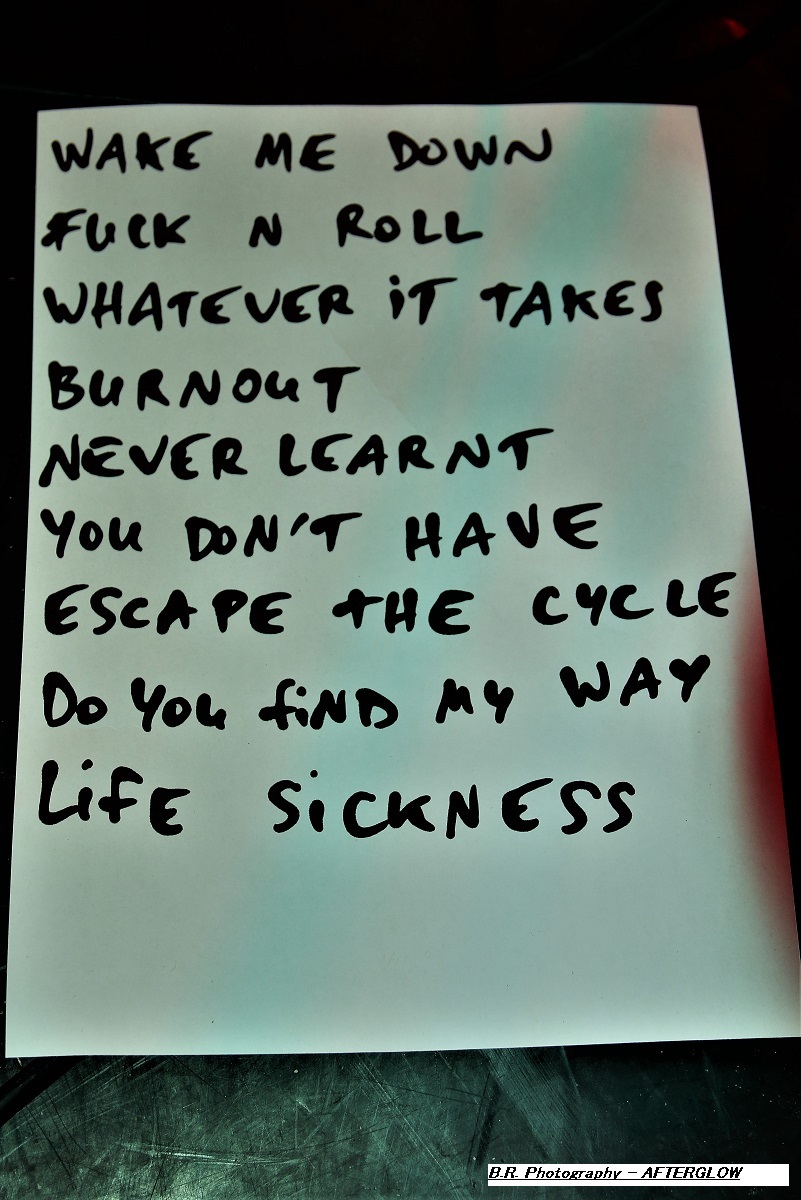 WAKE ME DOWN
FUCK N ROLL
WHATEVER iT TAKES
BURNOUT
NEVER LEARNT
YOU DON'T HAVE
ESCAPE THE CYCLE
DO YOU fiND MY WAY
LifE SiCKNESS
B.R. Photography - AFTERGLOW